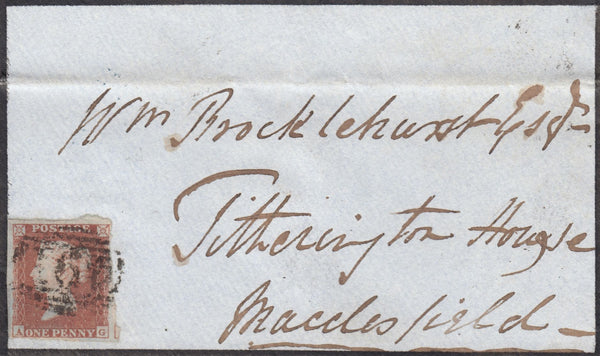 Wm Brocklehurst Esqr
Titherington House
Macclesfield
POSTAGE
A ONE PENNY G